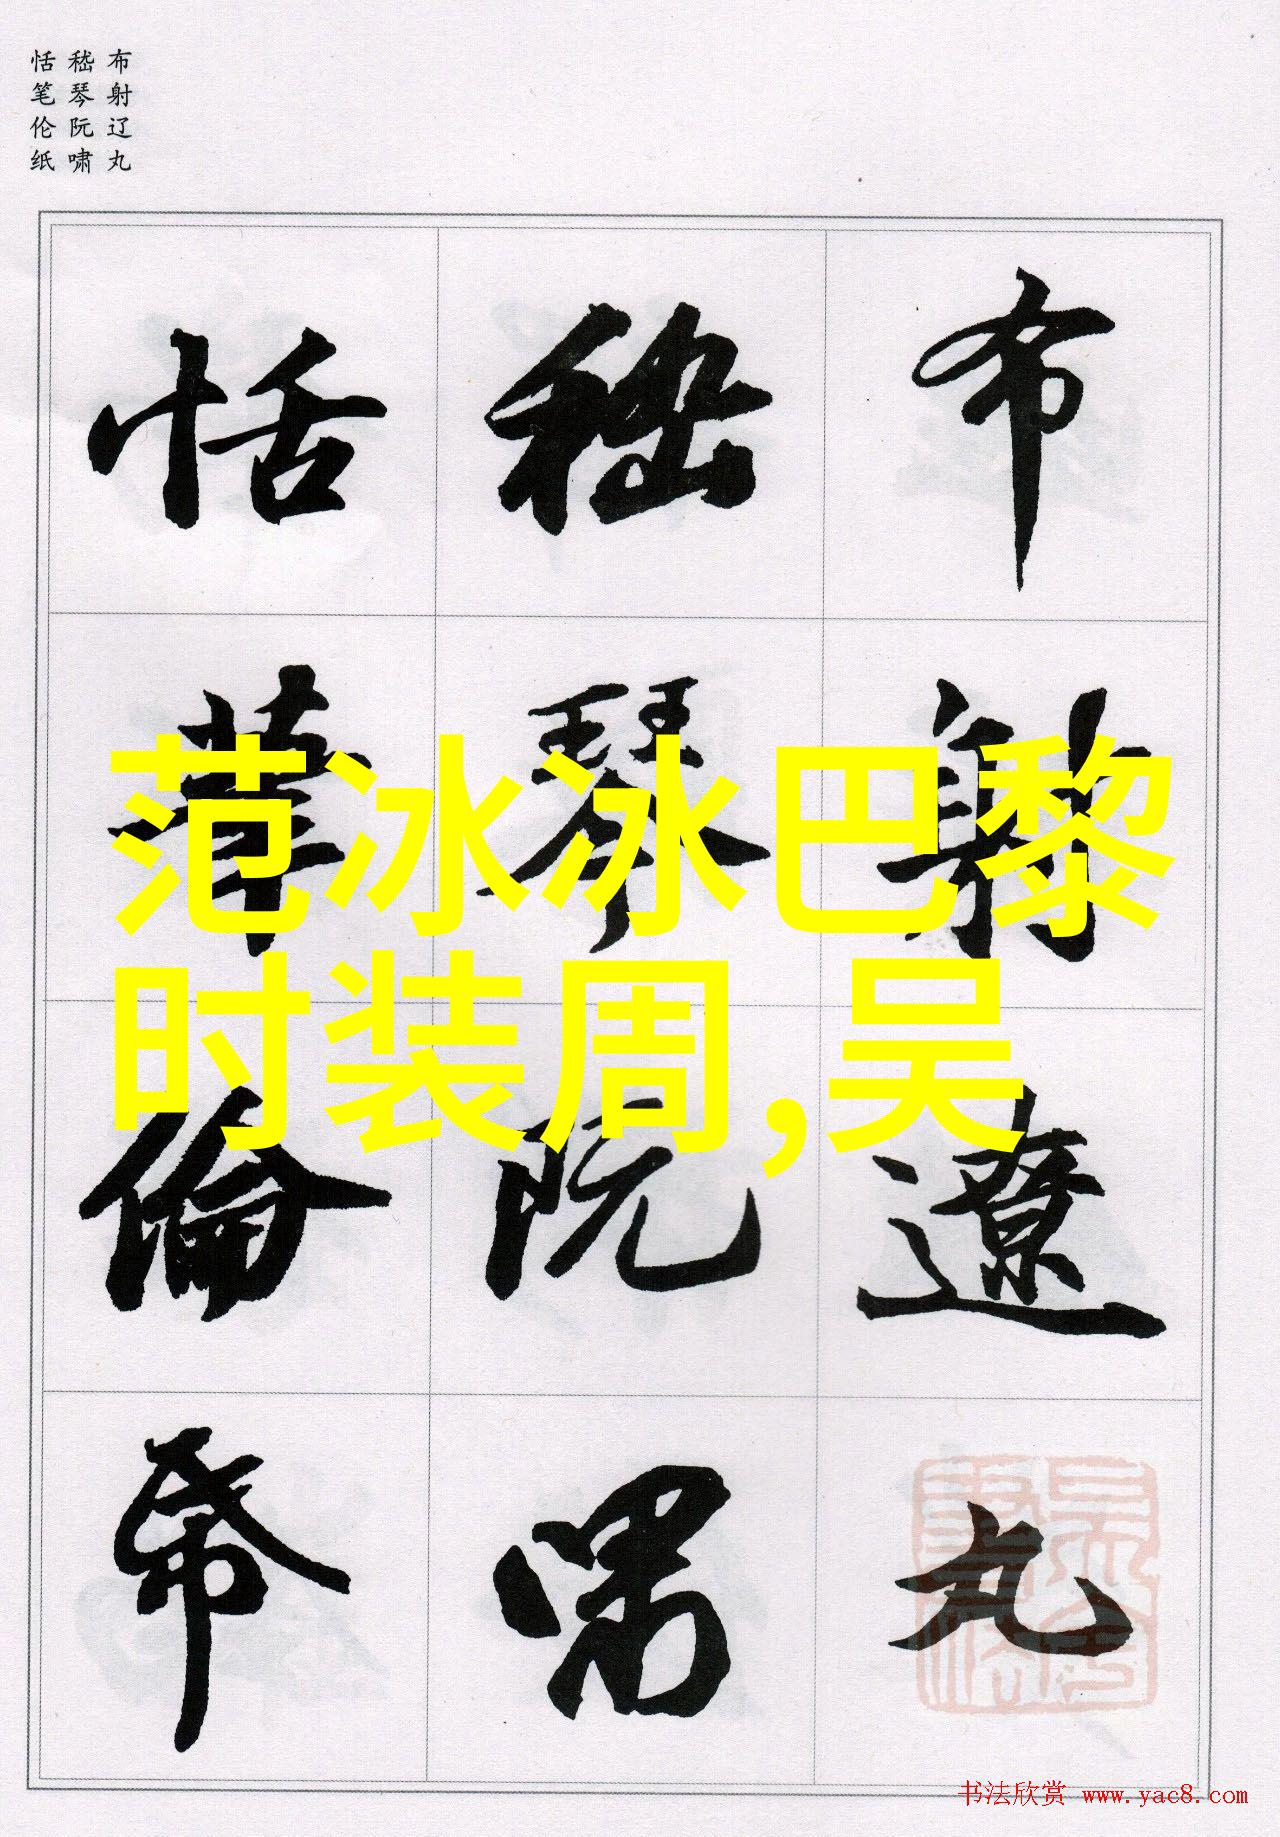 布射辽丸
嵇琴阮啸
恬笔伦纸
布射遼丸
嵇琴阮嘯
恬筆倫帋
范冰冰巴黎
时装周,吴
书法欣赏 www.yac8.com